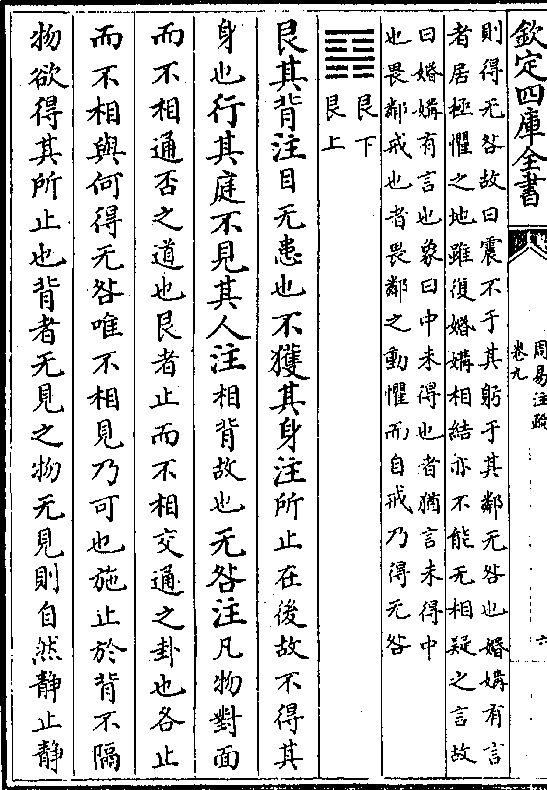 欽定四庫全書
周易注疏
卷九
六
則得无咎故曰震不于其躬于其鄰无咎也婚媾有言
者居極懼之地雖復婚媾相結亦不能无相疑之言故
曰婚媾有言也象曰中未得也者猶言未得中
也畏鄰戒也者畏鄰之動懼而自戒乃得无咎
艮下
艮上
艮其背注目无患也不獲其身注所止在後故不得其
身也行其庭不見其人注相背故也无咎注凡物對面
而不相通否之道也艮者止而不相交通之卦也各止
而不相與何得无咎唯不相見乃可也施止於背不隔
物欲得其所止也背者无見之物无見則自然靜止靜